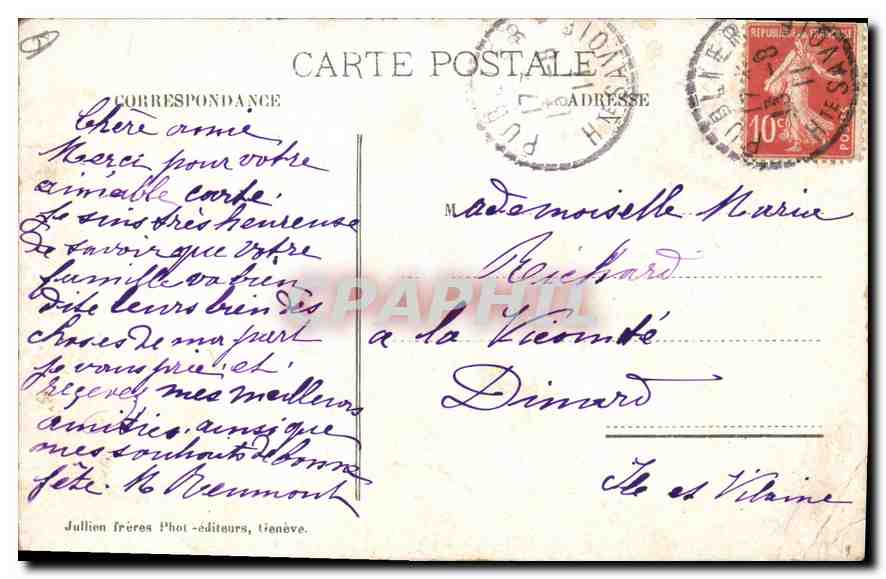 CARTE POSTALE
CORRESPONDANCE
ADRESSE
REPUBLIQUE FRANÇAISE
10c
POSTES
17-8
11
Hte SAVOIE
Chère amie
Merci pour votre
aimable carte.
Je suis très heureuse
de savoir que votre
famille va bien
dite leurs bien des
choses de ma part
je vous prie et
recevez mes meilleurs
amitiés ainsi que
mes souhaits de bonne
fête. M Reumont
Mademoiselle Marie
Richard
a la Vicomté
Dinard
Ile et Vilaine
EPAPHIL
Jullien frères Phot-éditeurs, Genève.